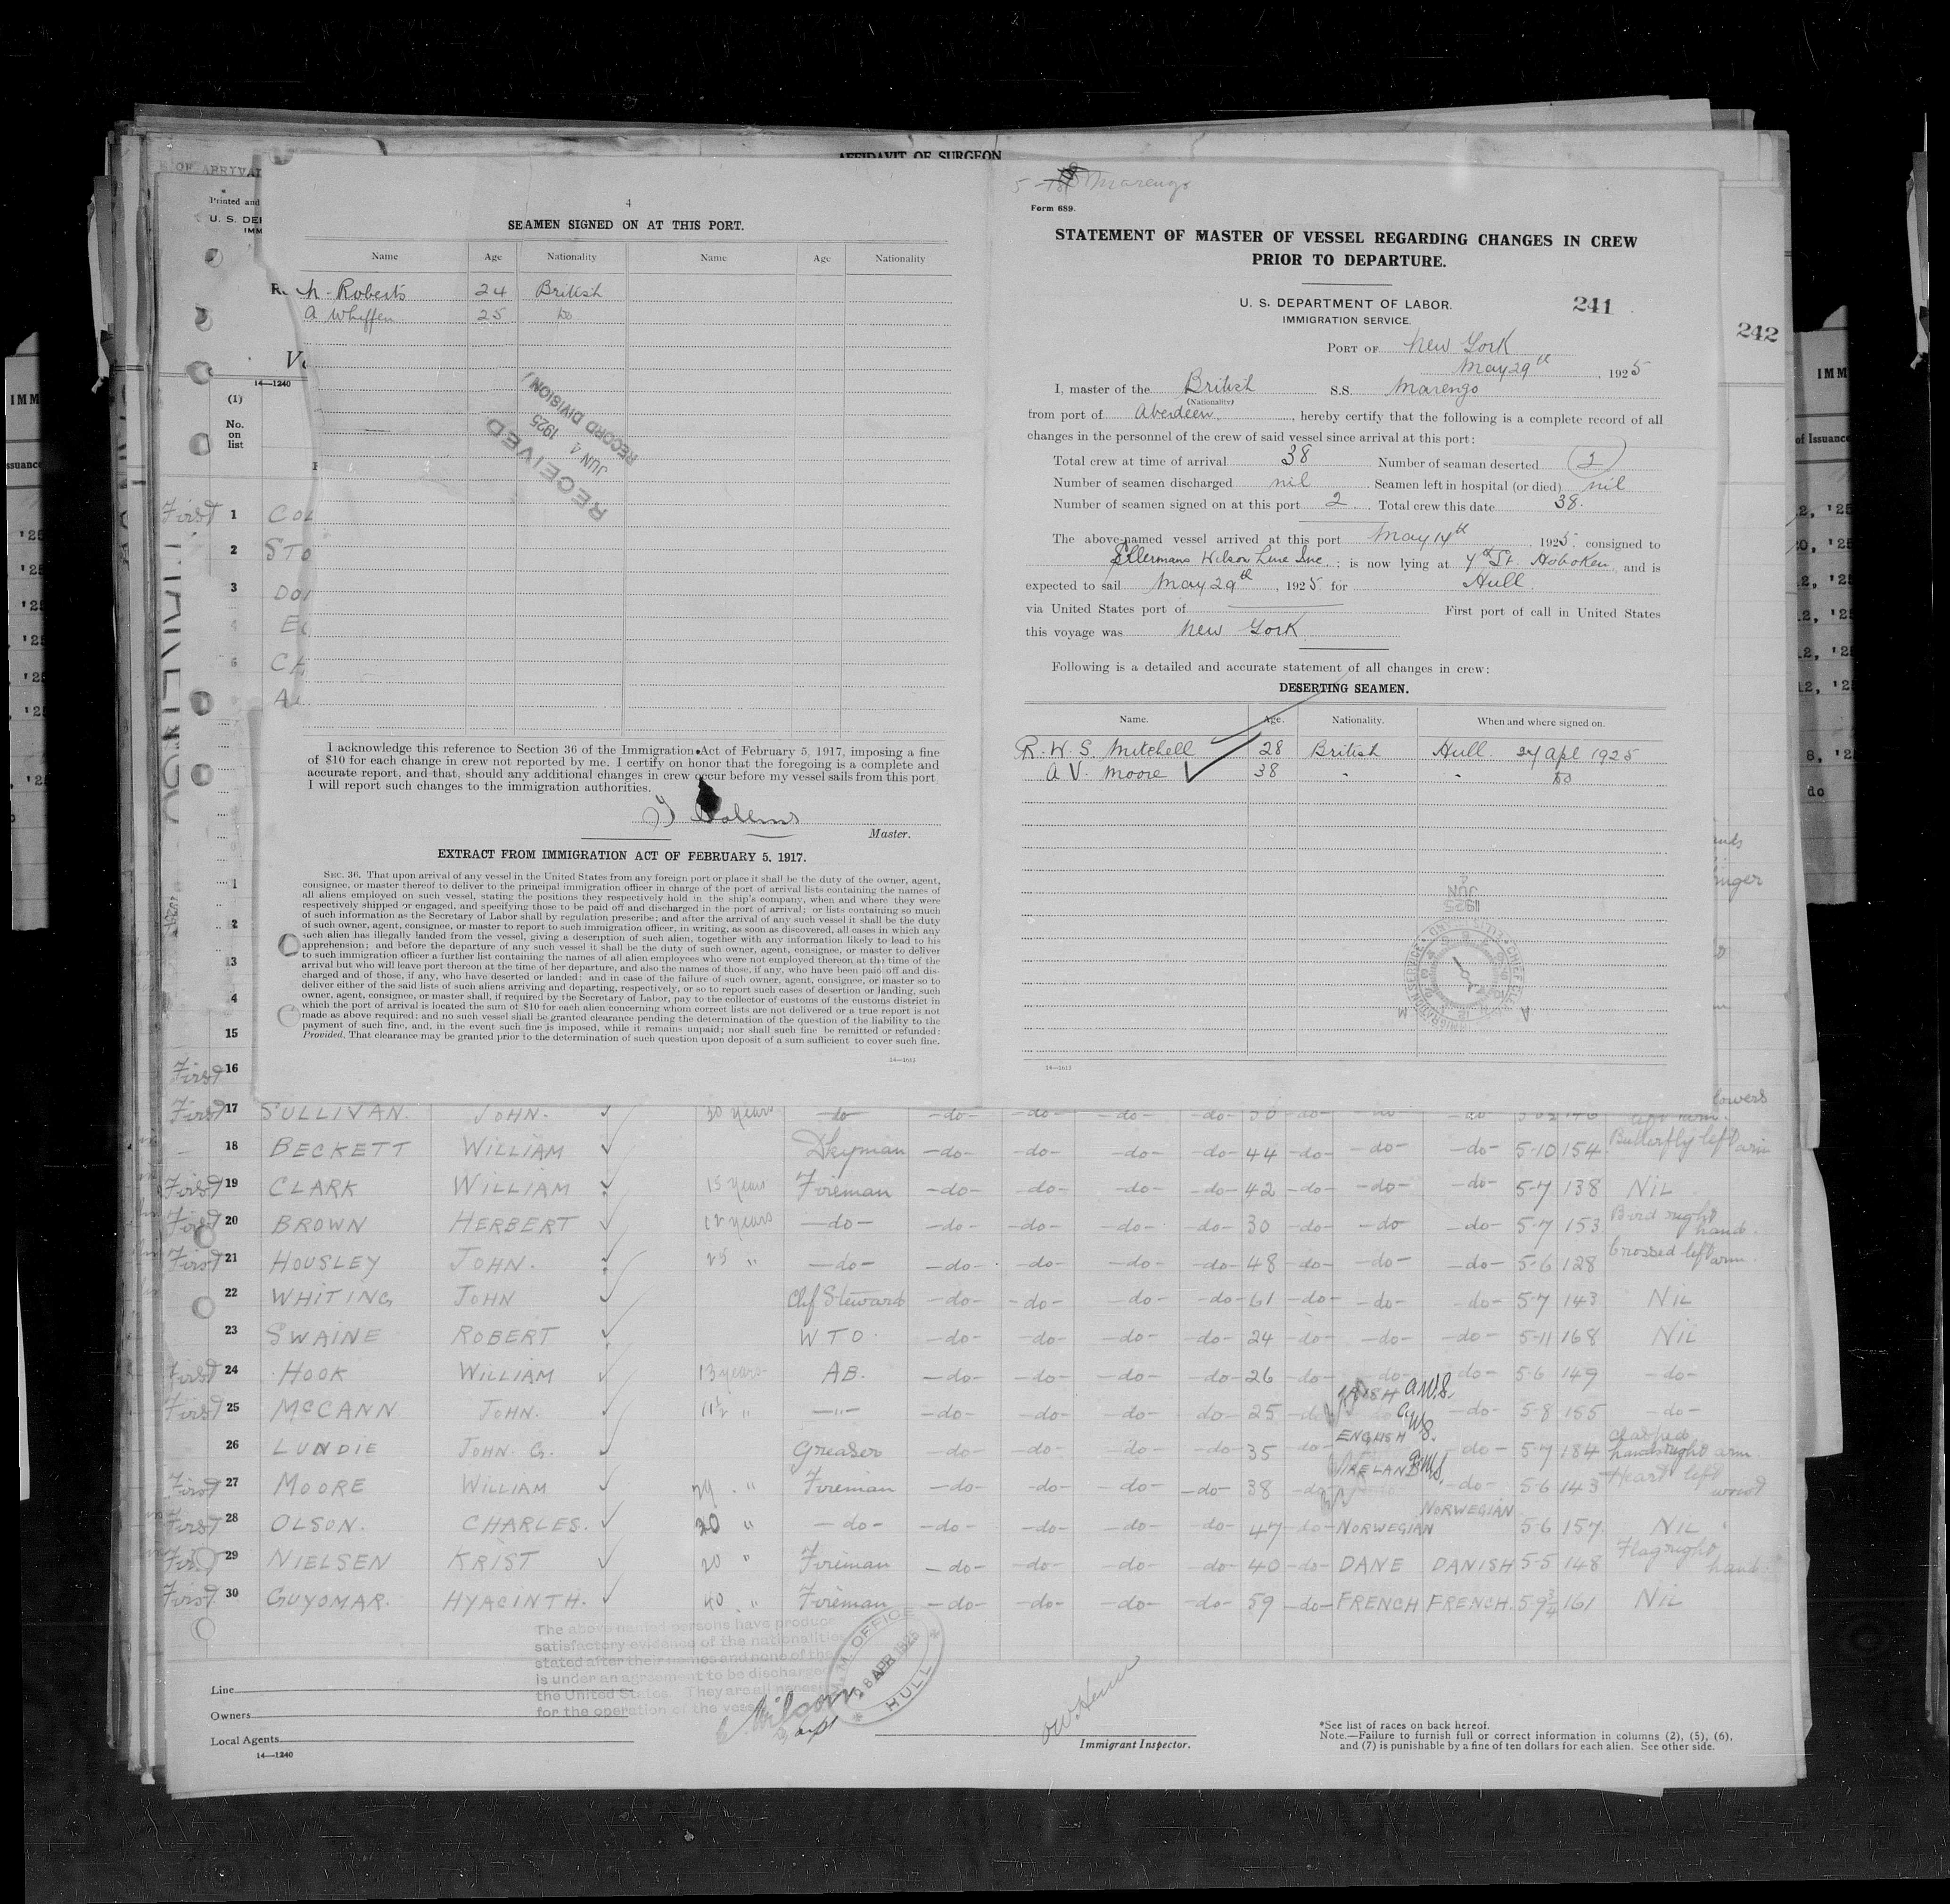 AFFIDAVIT OF SURGEON
4
SEAMEN SIGNED ON AT THIS PORT.
Name Age Nationality Name Age Nationality
Roberts 24 British
A Whiffen 25 Do
RECEIVED
JUN 4 1925
RECORD DIVISION
I acknowledge this reference to Section 36 of the Immigration Act of February 5, 1917, imposing a fine
of $10 for each change in crew not reported by me. I certify on honor that the foregoing is a complete and
accurate report, and that, should any additional changes in crew occur before my vessel sails from this port
I will report such changes to the immigration authorities.
Master.
EXTRACT FROM IMMIGRATION ACT OF FEBRUARY 5, 1917.
SEC. 36. That upon arrival of any vessel in the United States from any foreign port or place it shall be the duty of the owner, agent,
consignee, or master thereof to deliver to the principal immigration officer in charge of the port of arrival lists containing the names of
all aliens employed on such vessel, stating the positions they respectively hold in the ship's company, when and where they were
respectively shipped or engaged, and specifying those to be paid off and discharged in the port of arrival; or lists containing so much
of such information as the Secretary of Labor shall by regulation prescribe; and after the arrival of any such vessel it shall be the duty
of such owner, agent, consignee, or master to report to such immigration officer, in writing, as soon as discovered, all cases in which any
such alien has illegally landed from the vessel, giving a description of such alien, together with any information likely to lead to his
apprehension; and before the departure of any such vessel it shall be the duty of such owner, agent, consignee, or master to deliver
to such immigration officer a further list containing the names of all alien employees who were not employed thereon at the time of the
arrival but who will leave port thereon at the time of her departure, and also the names of those, if any, who have been paid off and dis-
charged and of those, if any, who have deserted or landed; and in case of the failure of such owner, agent, consignee, or master so to
deliver either of the said lists of such aliens arriving and departing, respectively, or so to report such cases of desertion or landing, such
owner, agent, consignee, or master shall, if required by the Secretary of Labor, pay to the collector of customs of the customs district in
which the port of arrival is located the sum of $10 for each alien concerning whom correct lists are not delivered or a true report is not
made as above required; and no vessel shall be granted clearance pending the determination of the question of the liability to the
payment of such fine, and, in the event such fine is imposed, while it remains unpaid; nor shall such fine be remitted or refunded:
Provided, That clearance may be granted prior to the determination of such question upon deposit of a sum sufficient to cover such fine.
14—1613
Marengo
Form 689.
STATEMENT OF MASTER OF VESSEL REGARDING CHANGES IN CREW
PRIOR TO DEPARTURE.
U. S. DEPARTMENT OF LABOR.
IMMIGRATION SERVICE.
241
242
PORT OF New York
May 29th, 1925
I, master of the British S.S. Marengo
(Nationality)
from port of Aberdeen, hereby certify that the following is a complete record of all
changes in the personnel of the crew of said vessel since arrival at this port:
Total crew at time of arrival 38 Number of seaman deserted 2
Number of seamen discharged nil Seamen left in hospital (or died) nil
Number of seamen signed on at this port 2. Total crew this date 38.
The above-named vessel arrived at this port May 14th, 1925, consigned to
Ellermans Wilson Line Inc.; is now lying at 7th St. Hoboken, and is
expected to sail May 29th, 1925 for Hull.
via United States port of First port of call in United States
this voyage was New York
Following is a detailed and accurate statement of all changes in crew:
DESERTING SEAMEN.
Name. Age. Nationality. When and where signed on.
R. W. S. Mitchell 28 British Hull. 27 Apl 1925
A V. Moore 38 " " Do
14—1613
Printed and
U. S. DE
IMM
14—1240
(1)
No.
on
list
First 1 COL
2 STO
3 DO
4
CH
15
First 16
First 17 SULLIVAN. JOHN. 30 years -do- -do- -do- -do- -do- 30 -do-
18 BECKETT WILLIAM Dkyman -do- -do- -do- -do- 44 -do- -do- -do- 5-10 154 Butterfly left arm
First 19 CLARK WILLIAM 15 years Fireman -do- -do- -do- -do- 42 -do- -do- -do- 5-7 138 NIL
First 20 BROWN HERBERT 12 years -do- -do- -do- -do- -do- 30 -do- -do- -do- 5-7 153 Bird right hand.
First 21 HOUSLEY JOHN. 25 " -do- -do- -do- -do- -do- 48 -do- -do- -do- 5-6 128 Crossed left arm.
22 WHITING JOHN Chf Steward -do- -do- -do- -do- 61 -do- -do- -do- 5-7 143 NIL
23 SWAINE ROBERT WTO. -do- -do- -do- -do- 24 -do- -do- -do- 5-11 168 NIL
First 24 HOOK WILLIAM 13 years AB. -do- -do- -do- -do- 26 -do- -do- -do- 5-6 149 -do-
First 25 McCANN JOHN. 11½ " -"- -do- -do- -do- -do- 25 -do- IRISH -do- 5-8 155 -do-
26 LUNDIE JOHN G. Greaser -do- -do- -do- -do- 35 -do- ENGLISH -do- 5-7 184 Clasped hands right arm.
First 27 MOORE WILLIAM 29 " Fireman -do- -do- -do- -do- 38 -do- IRELAND -do- 5-6 143 Heart left wrist
First 28 OLSON. CHARLES. 20 " -do- -do- -do- -do- -do- 47 -do- NORWEGIAN NORWEGIAN 5-6 157 NIL
First 29 NIELSEN KRIST 20 " Fireman -do- -do- -do- -do- 40 -do- DANE DANISH 5-5 148 Flag right hand.
First 30 GUYOMAR. HYACINTH. 40 " Fireman -do- -do- -do- -do- 59 -do- FRENCH FRENCH. 5-9¾ 161 NIL
The above named persons have produce
satisfactory evidence of the nationalities
stated after their names and none of the
is under an agreement to be discharged
the United States. They are all
for the operation of the vess
HULL
Line
Owners
Local Agents
14—1240
Immigrant Inspector.
*See list of races on back hereof.
Note.—Failure to furnish full or correct information in columns (2), (5), (6),
and (7) is punishable by a fine of ten dollars for each alien. See other side.